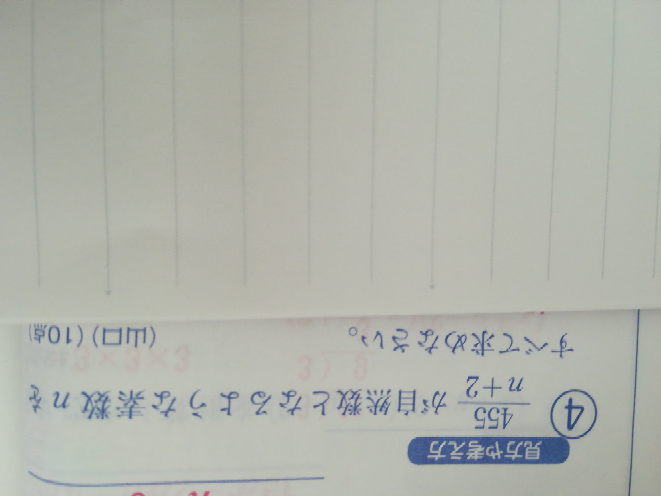 見方や考え方
④ 455/n+2 が自然数となるような素数 n を
すべて求めなさい。 (山口) (10点)